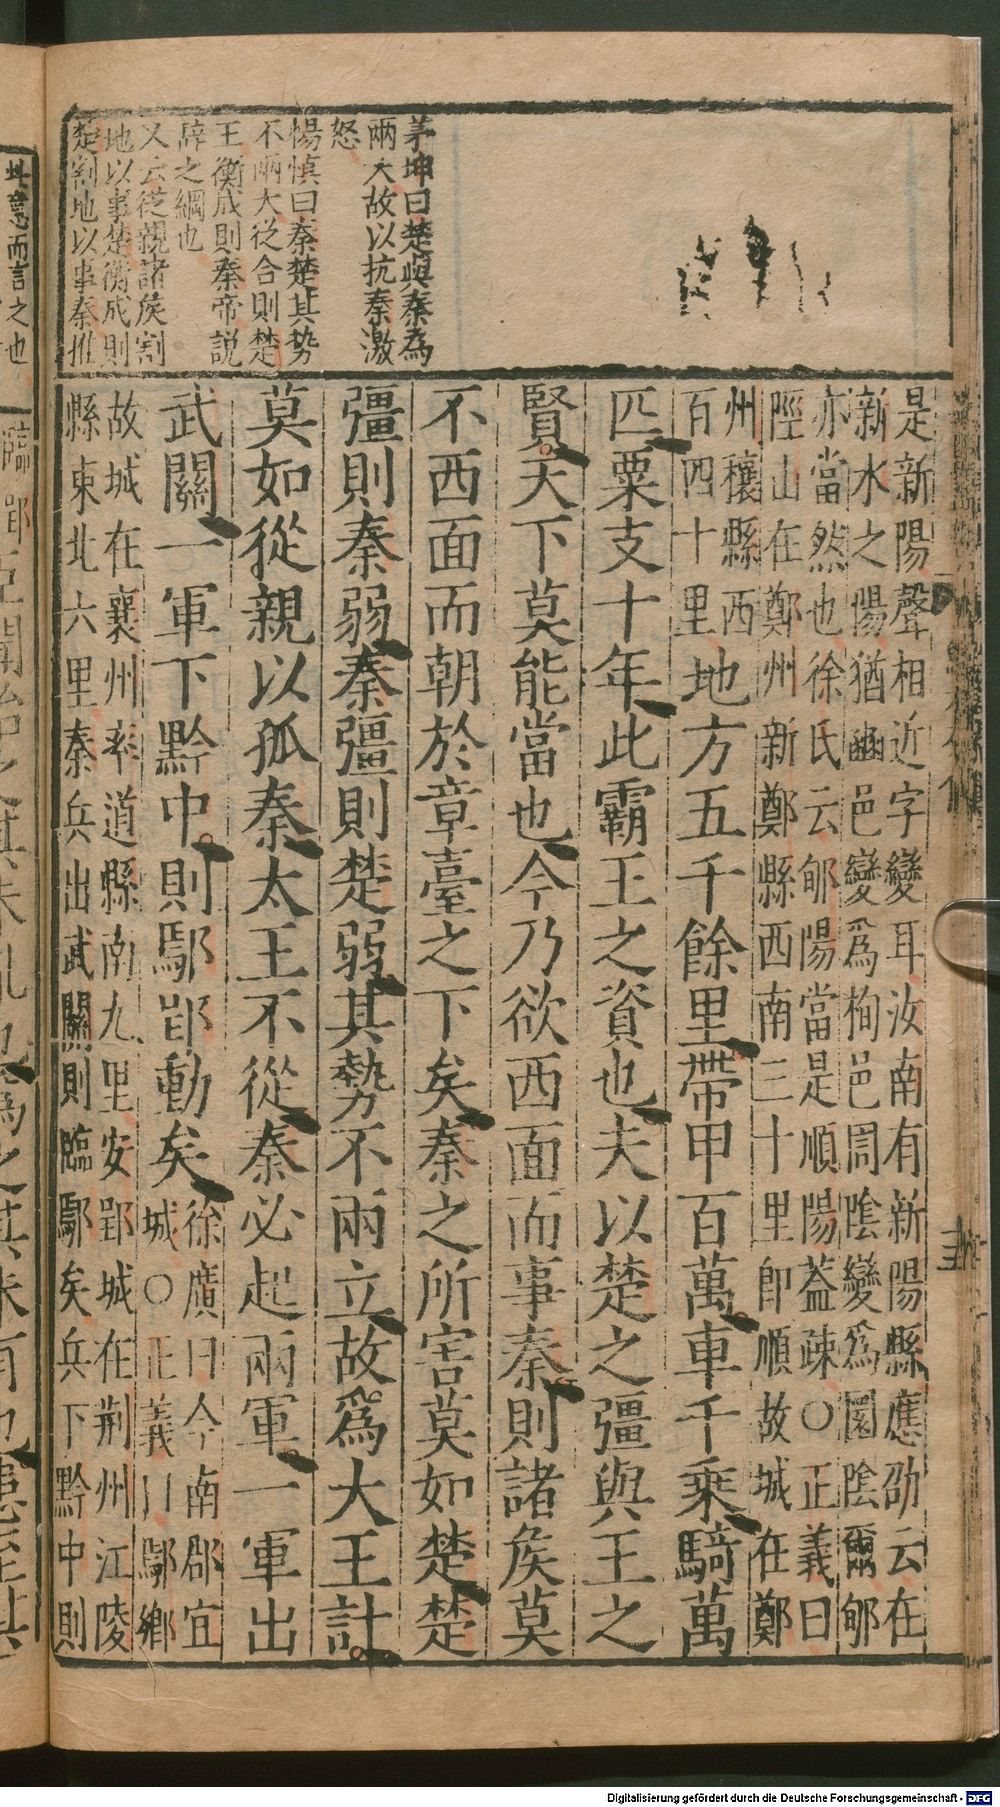 茅坤曰楚與秦為
兩大故以抗秦激
怒
楊慎曰秦楚其勢
不兩大從合則楚
王衡成則秦帝說
辭之綱也
又云從親諸侯割
地以事楚衡成則
楚割地以事秦推
是新陽聲相近字變耳汝南有新陽縣應劭云在
新水之陽猶豳邑變為栒邑圁陰變為圜陰爾郇
亦當然也徐氏云郇陽當是順陽蓋疎○正義曰
陘山在鄭州新鄭縣西南三十里卽順故城在鄭
州穰縣西
百四十里地方五千餘里帶甲百萬車千乘騎萬
匹粟支十年此霸王之資也夫以楚之彊與王之
賢天下莫能當也今乃欲西面而事秦則諸侯莫
不西面而朝於章臺之下矣秦之所害莫如楚楚
彊則秦弱秦彊則楚弱其勢不兩立故爲大王計
莫如從親以孤秦太王不從秦必起兩軍一軍出
武關一軍下黔中則鄢郢動矣徐廣曰今南郡宜
城○正義曰鄢鄉
故城在襄州率道縣南九里安郢城在荆州江陵
縣東北六里秦兵出武關則臨鄢矣兵下黔中則
此意而言之也
Digitalisierung gefördert durch die Deutsche Forschungsgemeinschaft - DFG